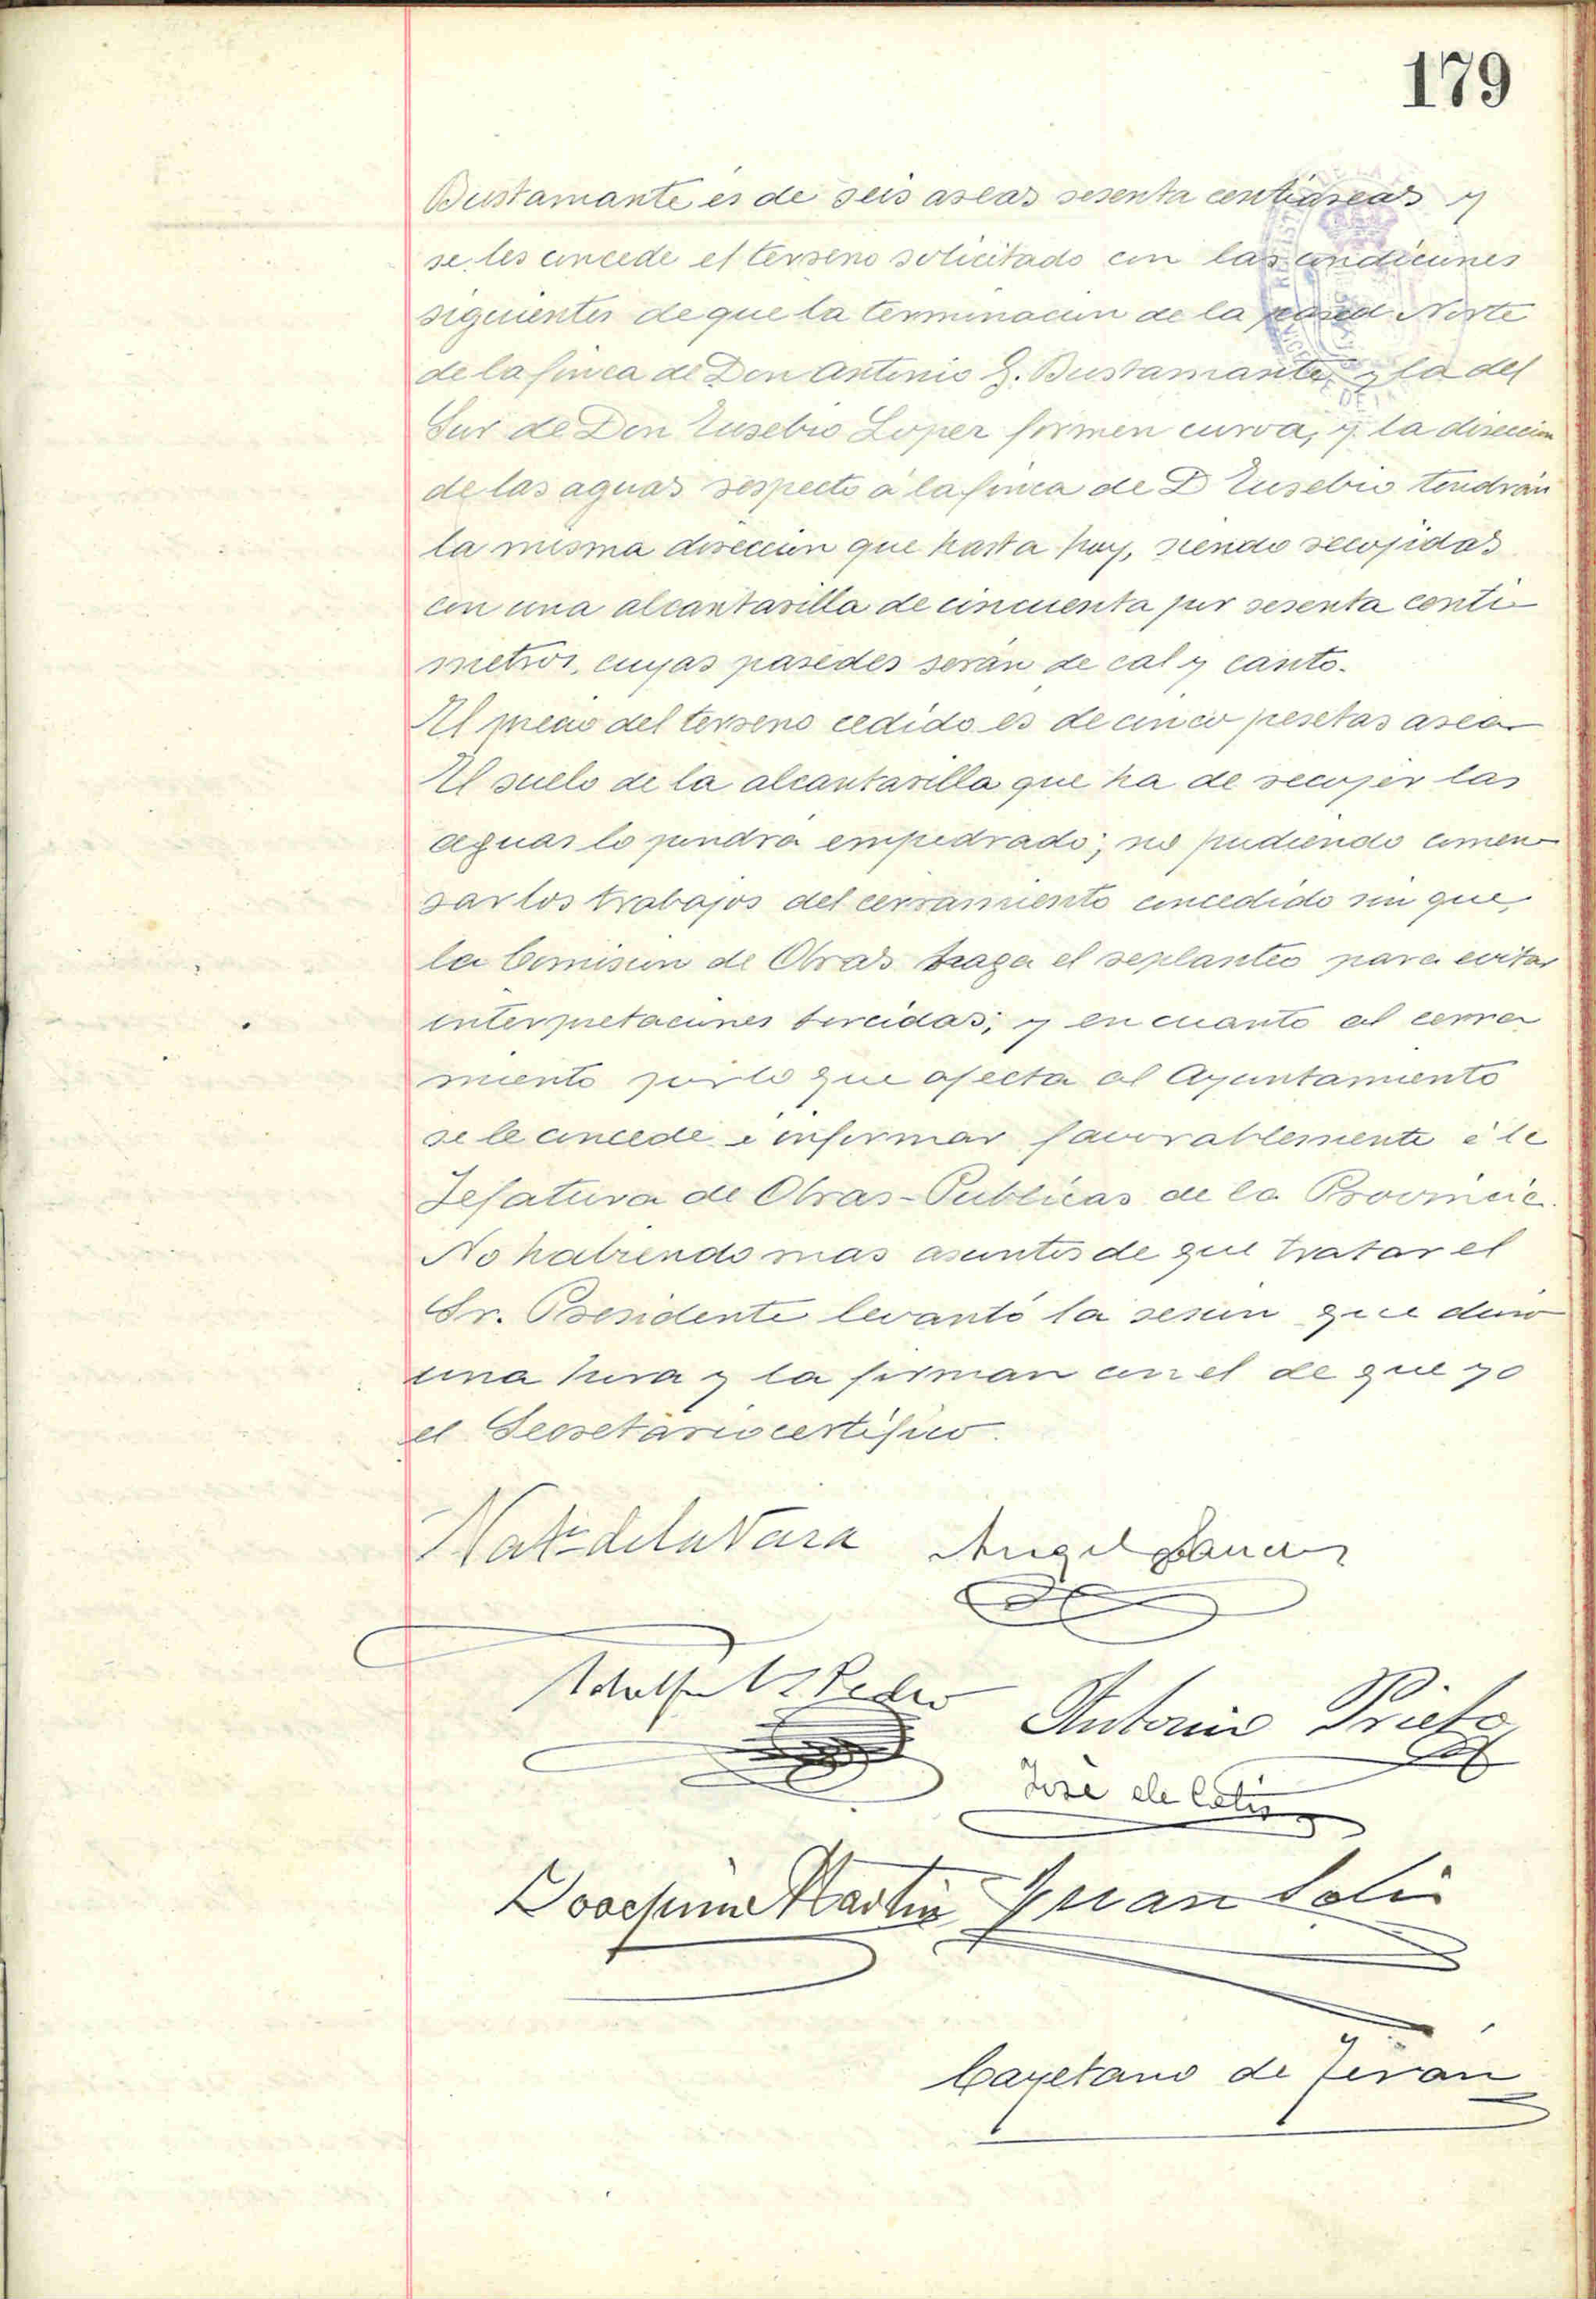 179
Bustamante es de seis areas sesenta centiareas y
se les concede el terreno solicitado con las condiciones
siguientes de que la terminacion de la pared Norte
de la finca de Don Antonio G. Bustamante y la del
Sur de Don Eusebio Loper formen curva, y la direccion
de las aguas respecto á la finca de D Eusebio tendrán
la misma direccion que hasta hoy, siendo recojidas
con una alcantarilla de cincuenta por sesenta centi-
metros, cuyas paredes serán de cal y canto.
El precio del terreno cedido es de cinco pesetas area
El suelo de la alcantarilla que ha de recojer las
aguas lo pondrá empedrado; no pudiendo comen
sar los trabajos del cerramiento concedido sin que
la Comision de Obras haga el replanteo para evitar
interpretaciones torcidas; y en cuanto al cerra
miento por lo que afecta al Ayuntamiento
se le concede e informar favorablemente á la
Jefatura de Obras-Publicas de la Provincia.
No habiendo mas asuntos de que tratar el
Sr. Presidente levantó la sesion que duró
una hora y la firman con el de que yo
el Secretario certifico.
de la Vara Angel
Adolfo Antonio Prieto
José de
Joaquin Martin Juan
Cayetano de Terán